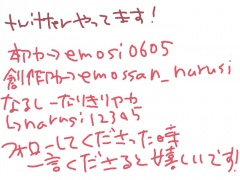 twitterやってます!
本アカ→emosi0605
創作アカ→emossan_narusi
なるしーなりきりアカ
↳narusi12345
フォローしてくださった時
一言くださると嬉しいです!